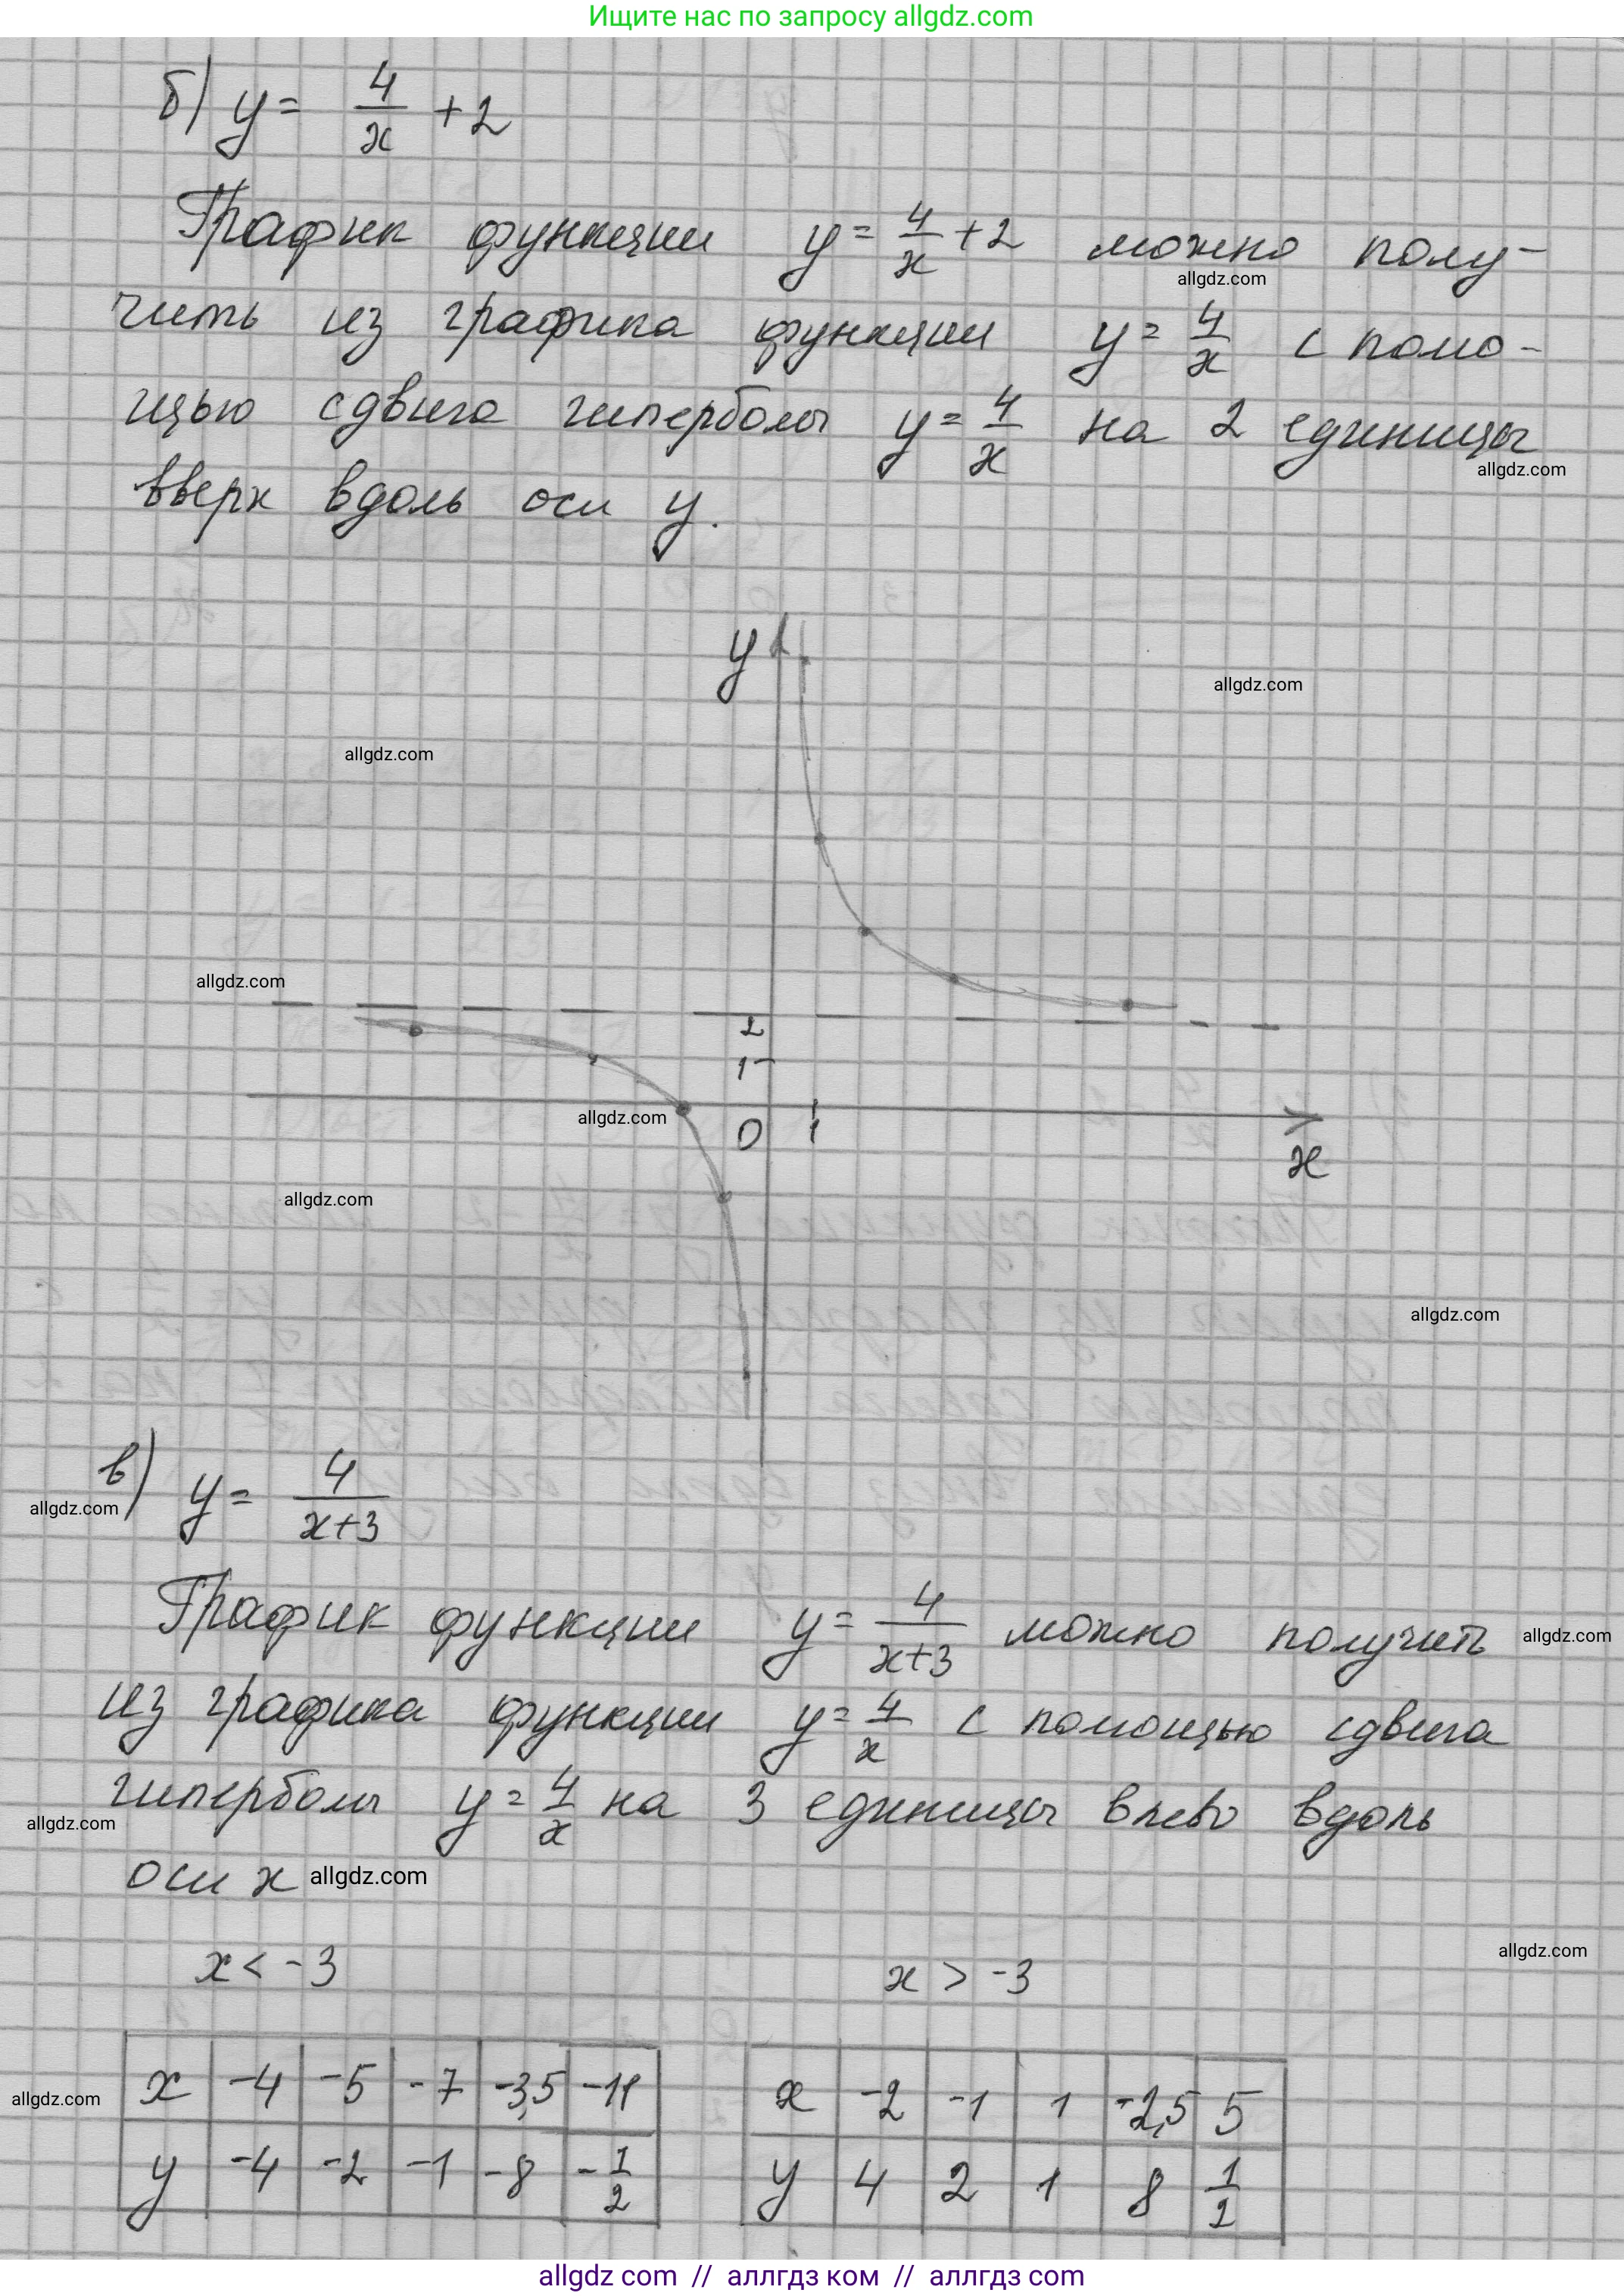 Ищите нас по запросу allgdz.com
б) y = 4/x + 2
График функции y = 4/x + 2 можно полу-
allgdz.com
чить из графика функции y = 4/x с помо-
щью сдвига гиперболы y = 4/x на 2 единицы
allgdz.com
вверх вдоль оси y.
y
allgdz.com
allgdz.com
allgdz.com
2
1
allgdz.com
0 1
x
allgdz.com
allgdz.com
в) y = 4/(x+3)
allgdz.com
График функции y = 4/(x+3) можно получить
allgdz.com
из графика функции y = 4/x с помощью сдвига
гиперболы y = 4/x на 3 единицы влево вдоль
allgdz.com
оси x allgdz.com
allgdz.com
x < -3 x > -3
allgdz.com
x -4 -5 -7 -3,5 -11 x -2 -1 1 -2,5 5
y -4 -2 -1 -8 -1/2 y 4 2 1 8 1/2
allgdz com // аллгдз ком // аллгдз com